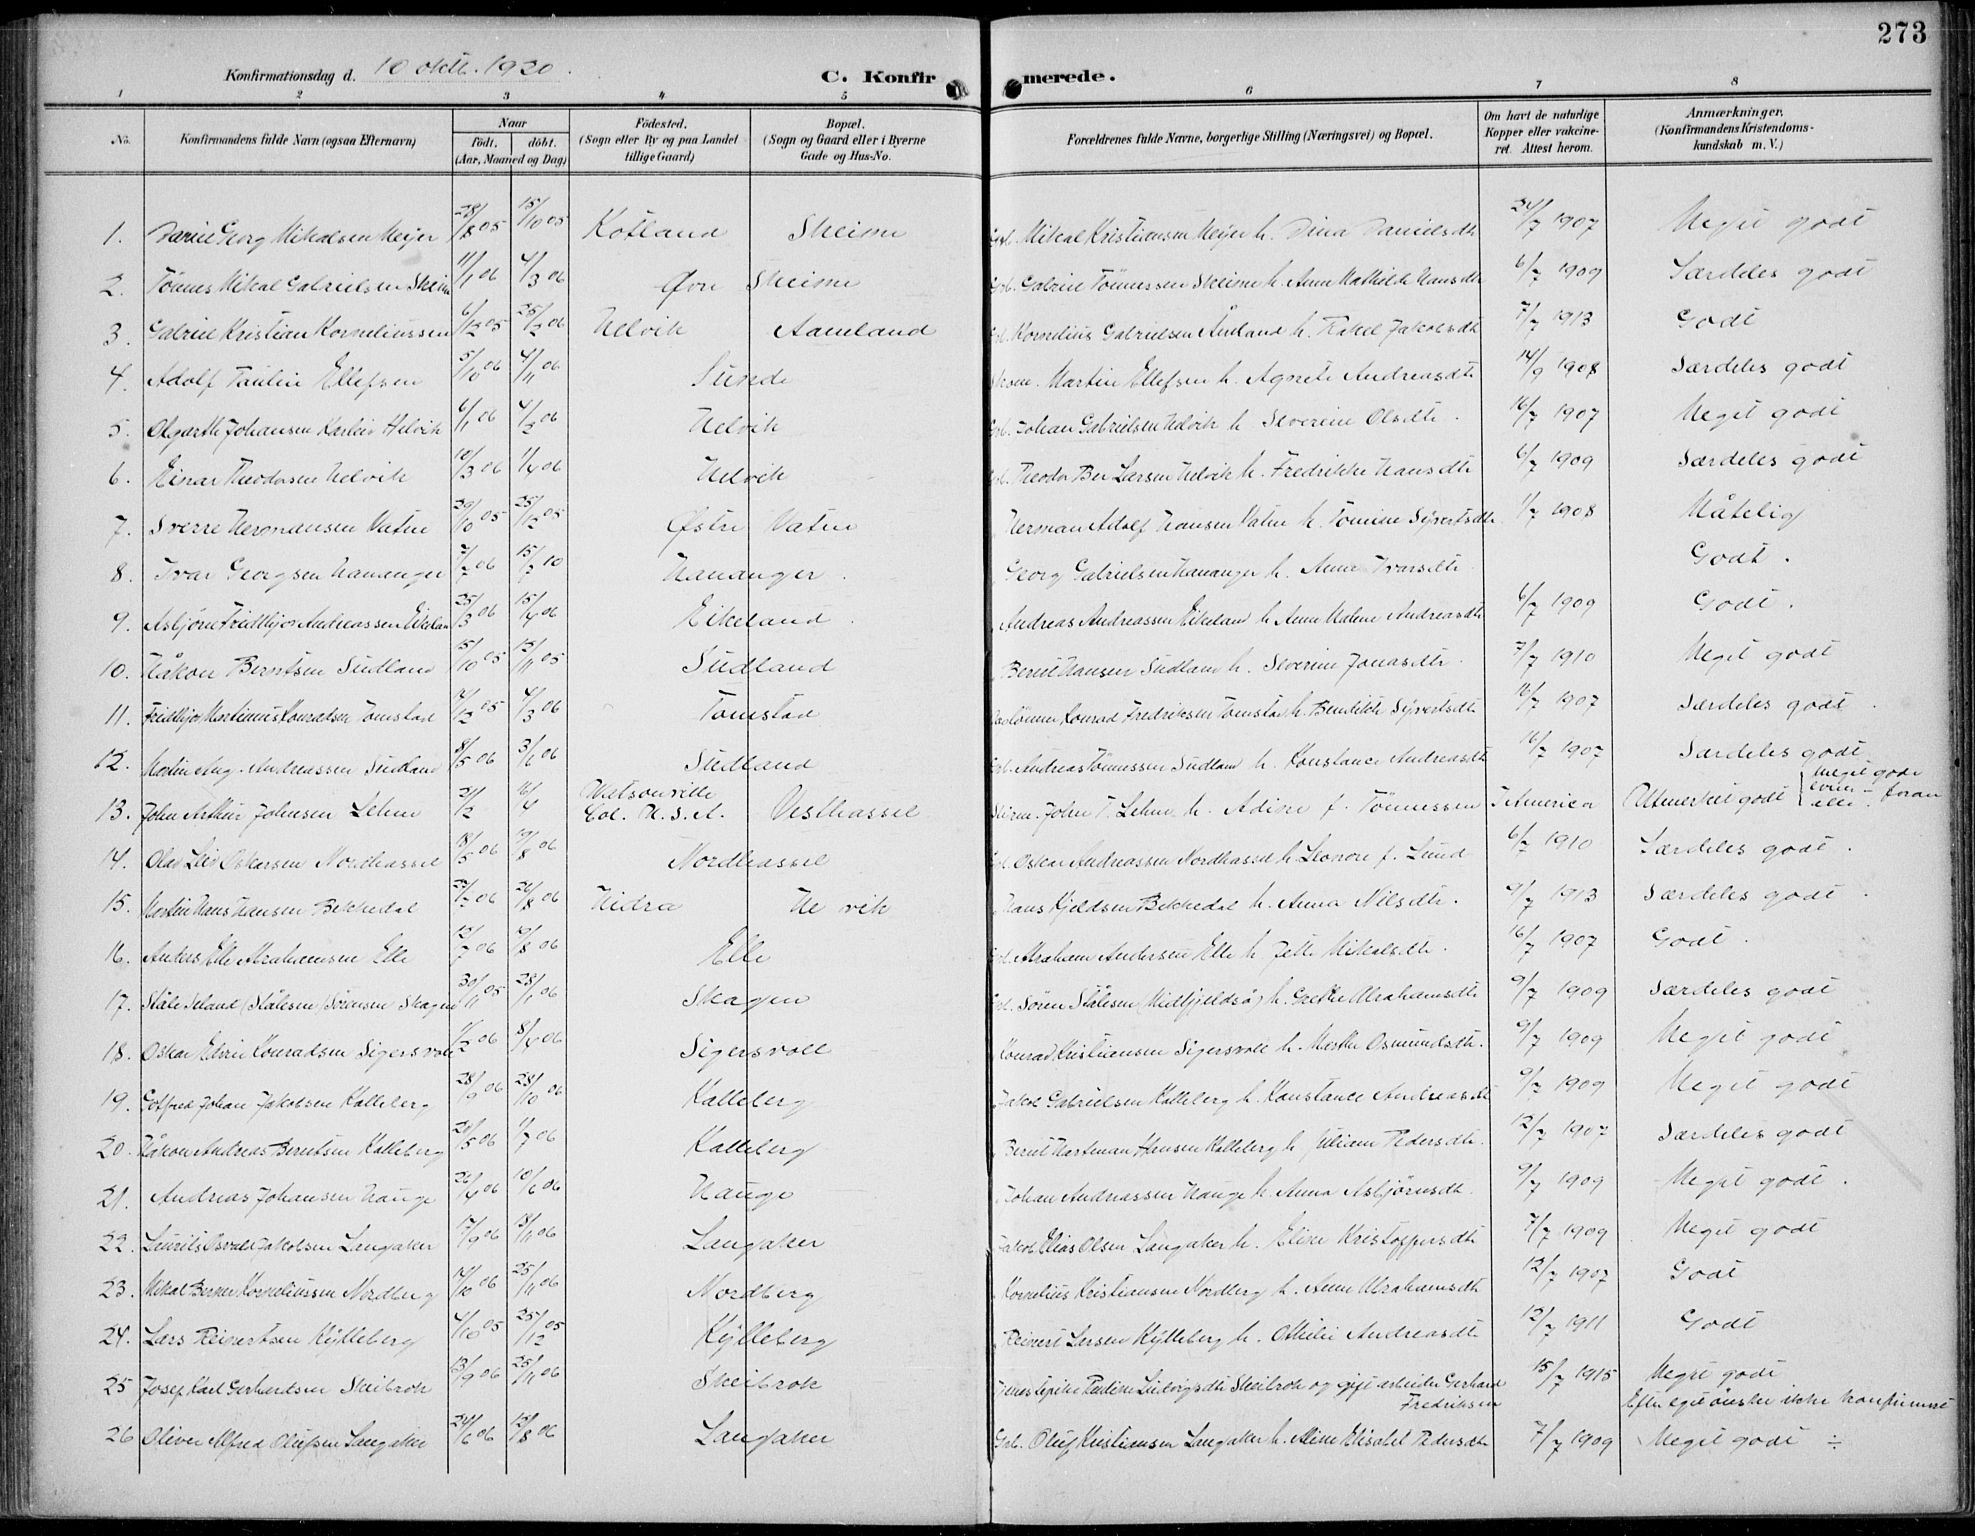 273
Konfirmationsdag d. 10 oktb. 1920.
C. Konfirmerede.
1 2 3 4 5 6 7 8
No. Konfirmandens fulde Navn (ogsaa Efternavn) Naar födt. döbt. (Aar, Maaned og Dag) Födested. (Sogn eller By og paa Landet tillige Gaard) Bopæl. (Sogn og Gaard eller i Byerne Gade og Hus-No. Forældrenes fulde Navne, borgerlige Stilling (Næringsvei) og Bopæl. Om havt de naturlige Kopper eller vakcineret. Attest herom. Anmærkninger. (Konfirmandens Kristendomskundskab m. V.)
1. Georg Mikalsen Meijer 28/8 05 15/10 05 Kotland Skeime Mikal Kristiansen Meijer h. Dina Danielsdtr 24/7 1907 Meget godt
2. Tönnes Mikal Gabrielsen Skeime 11/1 06 4/3 06 Övre Skeime Gabriel Tönnessen Skeime h. Anne Mathilde Hansdtr 6/7 1909 Særdeles godt
3. Gabriel Kristian Korneliussen 6/12 05 25/2 06 Helvik Aamland Kornelius Gabrielsen Åmland h. Rakel Jakobsdtr 7/7 1913 Godt
4. Adolf Paulin Ellefsen 5/10 06 4/11 06 Sunde Martin Ellefsen h. Agnete Andreasdtr 14/9 1908 Særdeles godt
5. Olgarth Johansen Helvik 6/1 06 4/2 06 Helvik Johan Gabrielsen Helvik h. Severine Olsdtr. 16/7 1907 Meget godt
6. Einar Theodorsen Helvik 10/3 06 1/4 06 Helvik Theodor Ber Larsen Helvik h. Fredrikke Hansdtr 6/7 1909 Særdeles godt
7. Sverre Hermansen Vatne 29/10 05 25/12 05 Östre Vatne Herman Adolf Hansen Vatne h. Tomine Syvertsdtr. 1/7 1908 Måtelig
8. Ivar Georgsen Hananger 7/7 06 15/7 10 Hananger. Georg Gabrielsen Hananger h. Anna Ivarsdtr. Godt.
9. Asbjörn Fridthjof Andreassen Eikeland 25/3 06 15/4 06 Eikeland. Andreas Andreassen Eikeland h. Anne Malene Andreasdtr 6/7 1909 Godt.
10. Håkon Berntsen Sudland 15/10 05 12/11 05 Sudland Bernt Hansen Sudland h. Severine Jonasdtr. 7/7 1910 Meget godt
11. Fridthjof Martinius Konradsen Tomstad /12 05 4/3 06 Tomstad Konrad Fredriksen Tomstad h. Bendikte Syvertsdtr 16/7 1907 Særdeles godt.
12. Martin Aug. Andreassen Sudland 8/5 06 3/6 06 Sudland Andreas Tönnessen Sudland h. Konstance Andreasdtr 16/7 1907 Særdeles godt
13. John Arthur Johnsen Lehne 21/2 16/4 Watsonville Cal. U.S.A. Vesthassel John T. Lehne h. Adine f. Tönnessen I America Utmerket godt Meget godt foran
14. Olav Leif Oskarsen Nordhassel 18/5 06 19/8 06 Nordhassel Oskar Andreassen Nordhassel h. Leonore f. Lund 6/7 1910 Særdeles godt.
15. Martin Hans Hansen Bekkedal /7 06 26/8 06 Hidra He vik Hans Kjeldsen Bekkedal h. Anna Nilsdtr. 9/7 1913 Særdeles godt.
16. Anders Elle Abrahamsen Elle 12/7 06 19/8 06 Elle Abraham Andersen Elle h. Jette Mikalsdtr. 16/7 1907 Godt.
17. Ståle Iseland (Stålesen) Sörensen Skagen 30/11 05 28/1 06 Skagen Sören Stålesen (Midtfjeldså) h. Grethe Abrahamsdtr 9/7 1909 Særdeles godt
18. Oskar Edvin Konradsen Sigersvoll 1/2 06 8/4 06 Sigersvoll Konrad Kristiansen Sigersvoll h. Marthe Osmundsdtr. 9/7 1909 Meget godt
19. Gotfred Johan Jakobsen Kalleberg 28/9 06 28/10 06 Kalleberg Jakob Gabrielsen Kalleberg h. Konstance Andreasdtr 9/7 1909 Meget godt
20. Håkon Andreas Berntsen Kalleberg 20/5 06 1/7 06 Kalleberg Bernt Hartman Hansen Kalleberg h. Juliane Pedersdtr. 12/7 1907 Særdeles godt
21. Andreas Johansen Hauge 26/4 06 10/6 06 Hauge Johan Andreassen Hauge h. Anna Asbjörnsdtr. 9/7 1909 Meget godt.
22. Laurits Osvald Jakobsen Langaker 17/9 06 18/11 06 Langaker Jakob Elias Olsen Langaker h. Eline Kristoffersdtr 7/7 1909 Meget godt
23. Mikal Berner Korneliussen Nordberg /10 06 25/11 06 Nordberg Kornelius Kristiansen Nordberg h. Anne Abrahamsdtr 12/7 1907 Godt
24. Lars Reinertsen Kylleberg 4/10 05 25/12 05 Kylleberg Reinert Larsen Kylleberg h. Othilie Andreasdtr 12/7 1911 Godt
25 Josef Karl Gerhardsen Skeibrok 13/9 06 25/11 06 Skeibrok Pauline Ludvigsdtr Skeibrok og gift arbeider Gerhard Fredriksen 15/7 1915 Meget godt
Efter eget önske ikke konfirmert
26 Oliver Alfred Olufsen Langaker 24/6 06 12/8 06 Langaker Gab. Oluf Kristiansen Langaker h. Aline Elisabet Pedersdtr 7/7 1909 Meget godt ÷